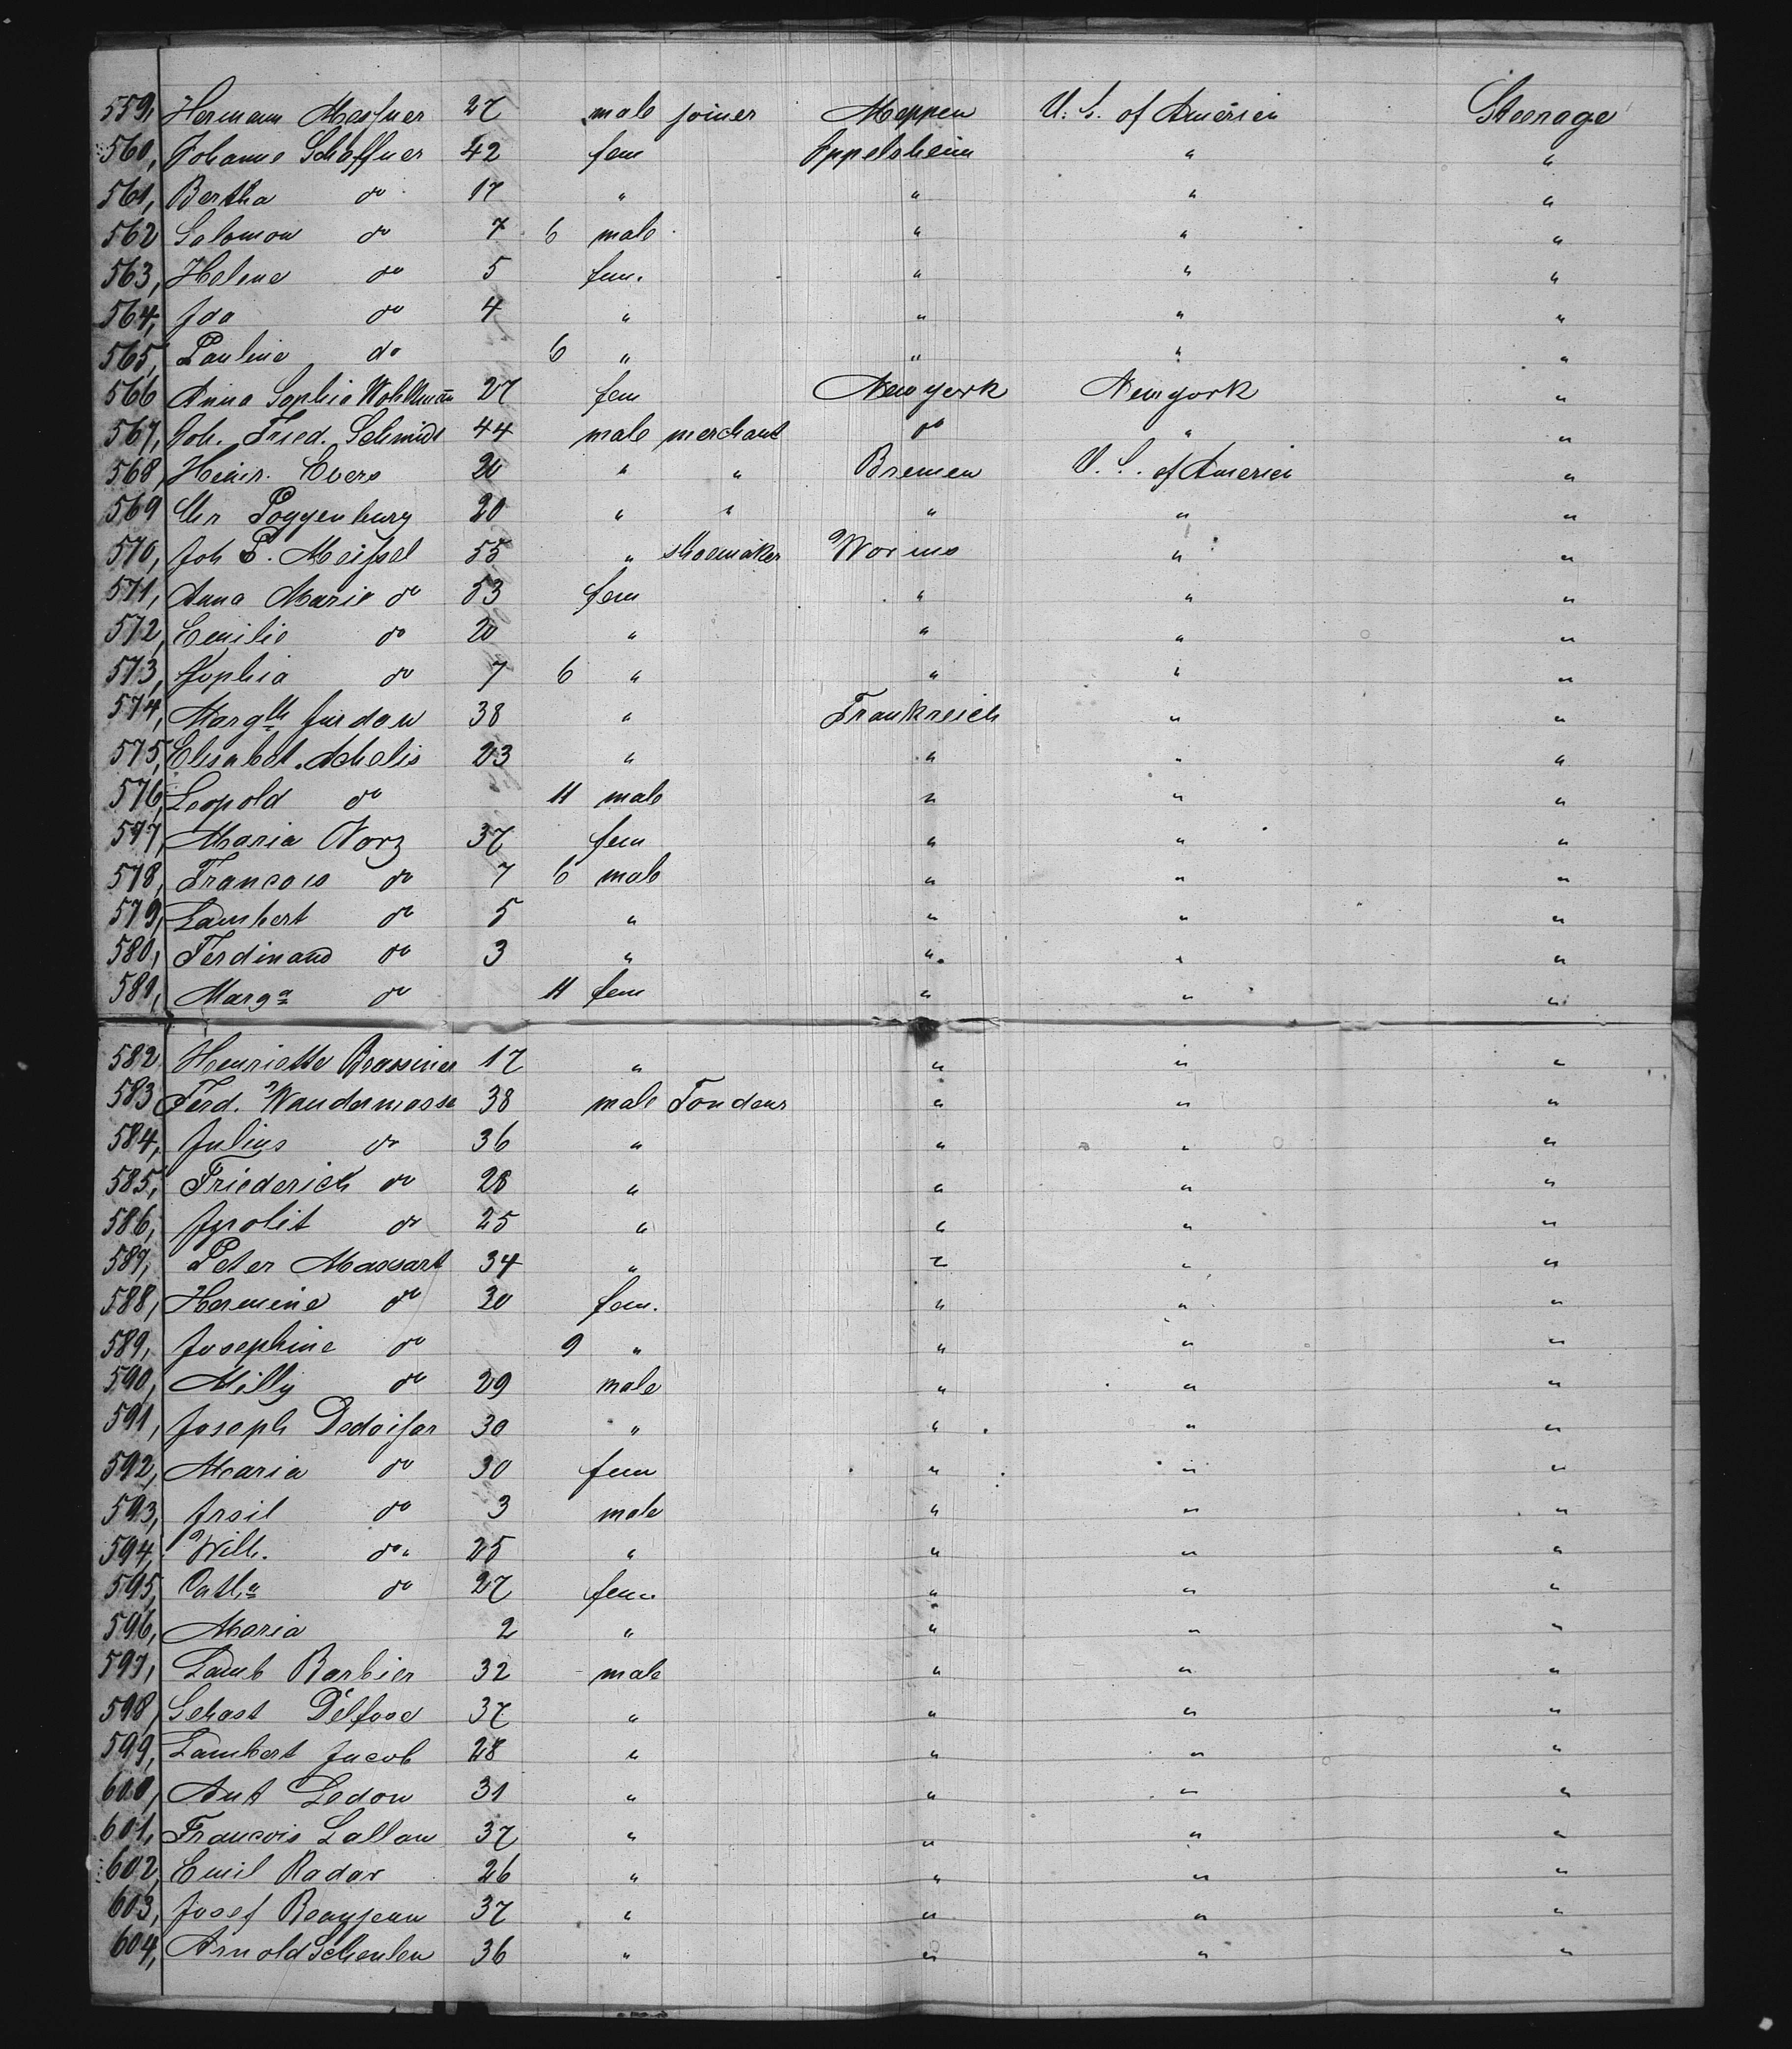 559, Hermann Messner 27 male joiner Meppen U. S. of America Steerage
560, Johanne Schaffner 42 fem Eppelsheim " "
561, Bertha do 17 " " " "
562 Salomon do 7 6 male " " "
563, Helene do 5 fem. " " "
564, Ida do 4 " " " "
565, Pauline do 6 " " " "
566 Anna Sophia 27 fem Newyork Newyork "
567, Joh. Fried. Schmidt 44 male merchant do " "
568, Heinr. Evers 20 " " Bremen U. S. of America "
569 Chr Poggenburg 20 " " " " "
570, Joh P. Meissel 55 " shoemaker Worms " "
571, Anna Marie do 53 fem " " "
572, Emilie do 20 " " " "
573, Sophia do 7 6 " " " "
574, Margth Jurdan 38 " Frankreich " "
575, Elisabet Achelis 23 " " " "
576, Leopold do 11 male " " "
577, Maria Norz 37 fem " " "
578, Francois do 7 6 male " " "
579, Lambert do 5 " " " "
580, Ferdinand do 3 " " " "
581, Marga do 11 fem " " "
582 Henriette Brassiner 17 " " " "
583 Ferd. Wandermasse 38 male Tondeur " " "
584, Julius do 36 " " " "
585, Friederich do 28 " " " "
586, Ipolit do 25 " " " "
587, Peter Massart 34 " " " "
588, Hermine do 30 fem. " " "
589, Josephine do 9 " " " "
590, Milly do 29 male " " "
591, Joseph 30 " " " "
592, Maria do 30 fem " " "
593, do 3 male " " "
594, Wilh. do 25 " " " "
595, Catha do 27 fem. " " "
596, Maria 2 " " " "
597, Lamb Barbier 32 male " " "
598, Sebast Delfosse 37 " " " "
599, Lambert Jacob 28 " " " "
600, Ant Ledon 31 " " " "
601, Francois Lallan 37 " " " "
602, Emil Radar 26 " " " "
603, Josef Beaujean 37 " " " "
604, Arnold Schenlen 36 " " " "